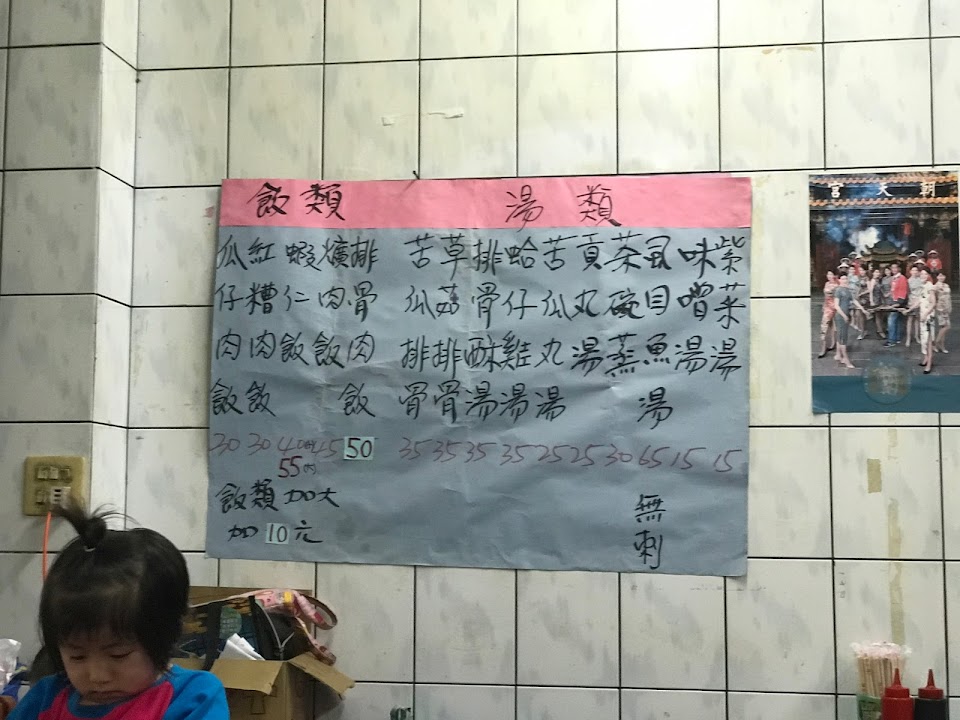 飯類
瓜仔肉飯 30
紅糟肉飯 30
蝦仁飯 40 55
爌肉飯 45
排骨肉飯 50
飯類加大
加10元
湯類
苦瓜排骨 35
草菇排骨 35
排骨酥湯 35
蛤仔雞湯 35
苦瓜丸湯 25
貢丸湯 25
茶碗蒸 30
虱目魚湯 65 無刺
味噌湯 15
紫菜湯 15
朝天宮